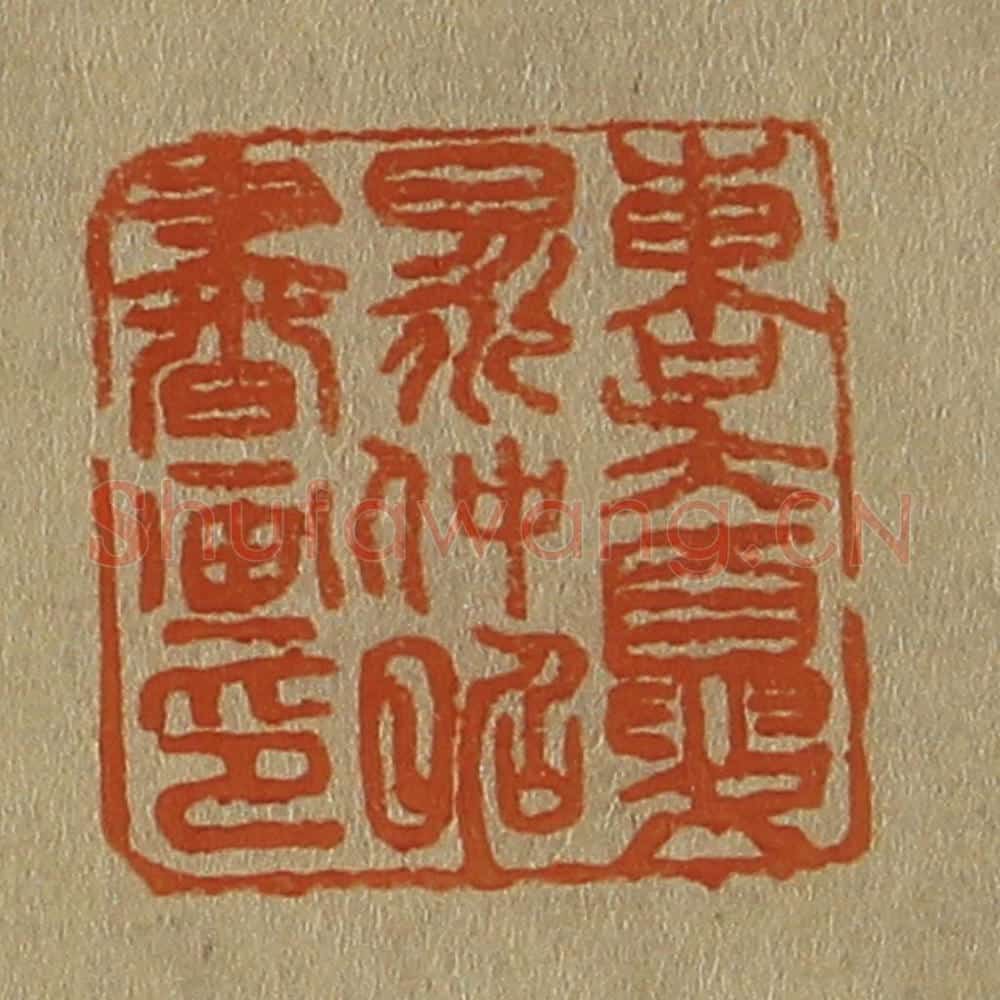 東吳夏
昶仲昭
書畫印
Shufawang.CN